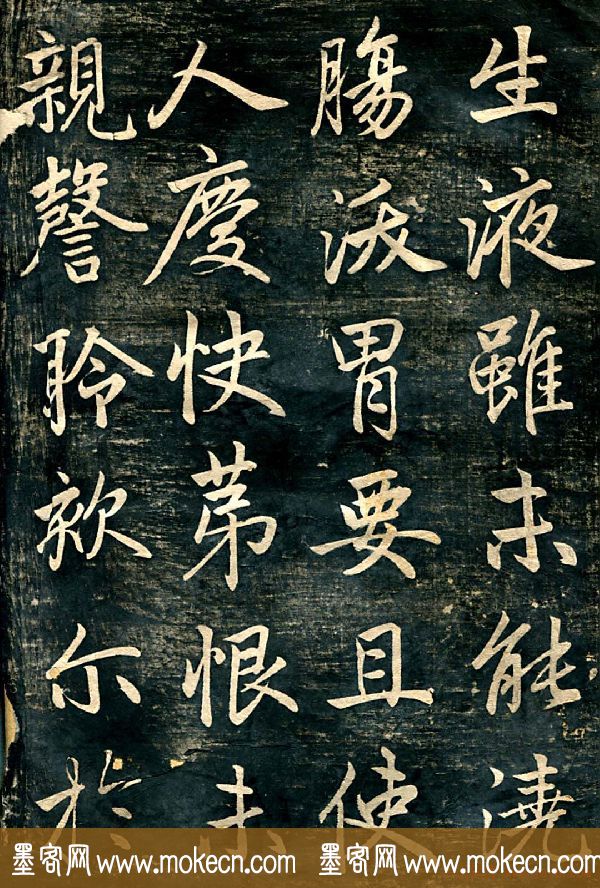 生液雖未能澆
腸沃胃要且使
人慶快苐恨未
親謦聆欬尒於
墨客网 www.mokecn.com 墨客网 www.mokecn.com